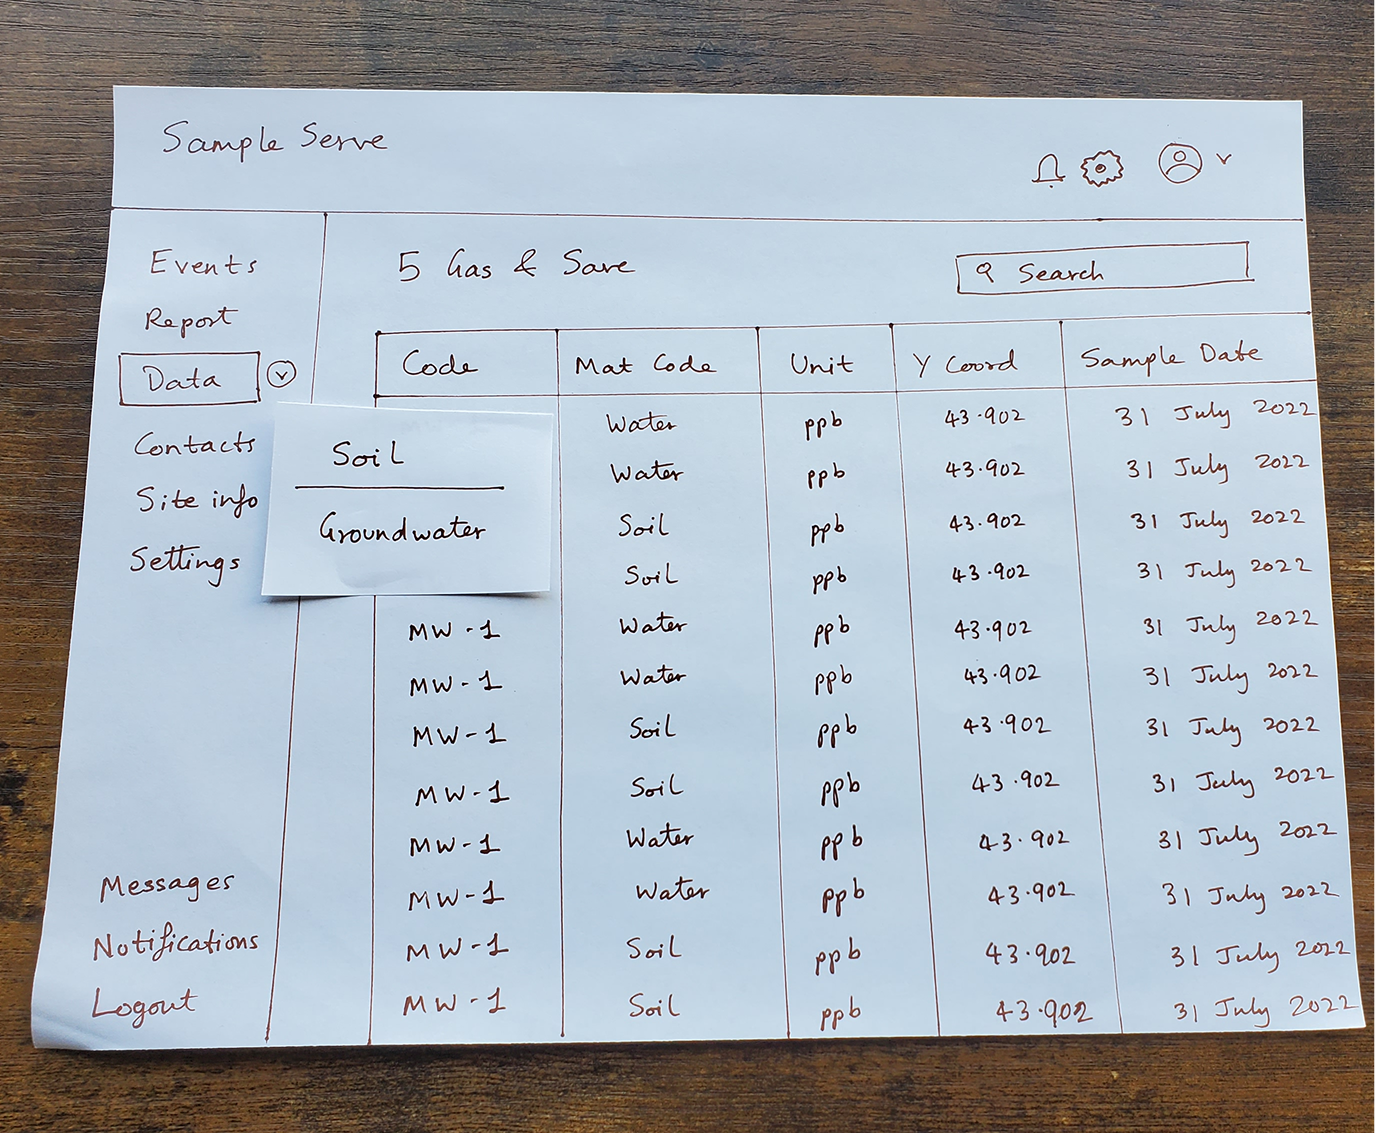 Sample Serve
Events
Report
Data
Contacts
Site info
Settings
Messages
Notifications
Logout
Soil
Groundwater
5 Gas & Save
Search
Code Mat Code Unit Y Coord Sample Date
Water ppb 43.902 31 July 2022
Water ppb 43.902 31 July 2022
Soil ppb 43.902 31 July 2022
Soil ppb 43.902 31 July 2022
MW-1 Water ppb 43.902 31 July 2022
MW-1 Water ppb 43.902 31 July 2022
MW-1 Soil ppb 43.902 31 July 2022
MW-1 Soil ppb 43.902 31 July 2022
MW-1 Water ppb 43.902 31 July 2022
MW-1 Water ppb 43.902 31 July 2022
MW-1 Soil ppb 43.902 31 July 2022
MW-1 Soil ppb 43.902 31 July 2022